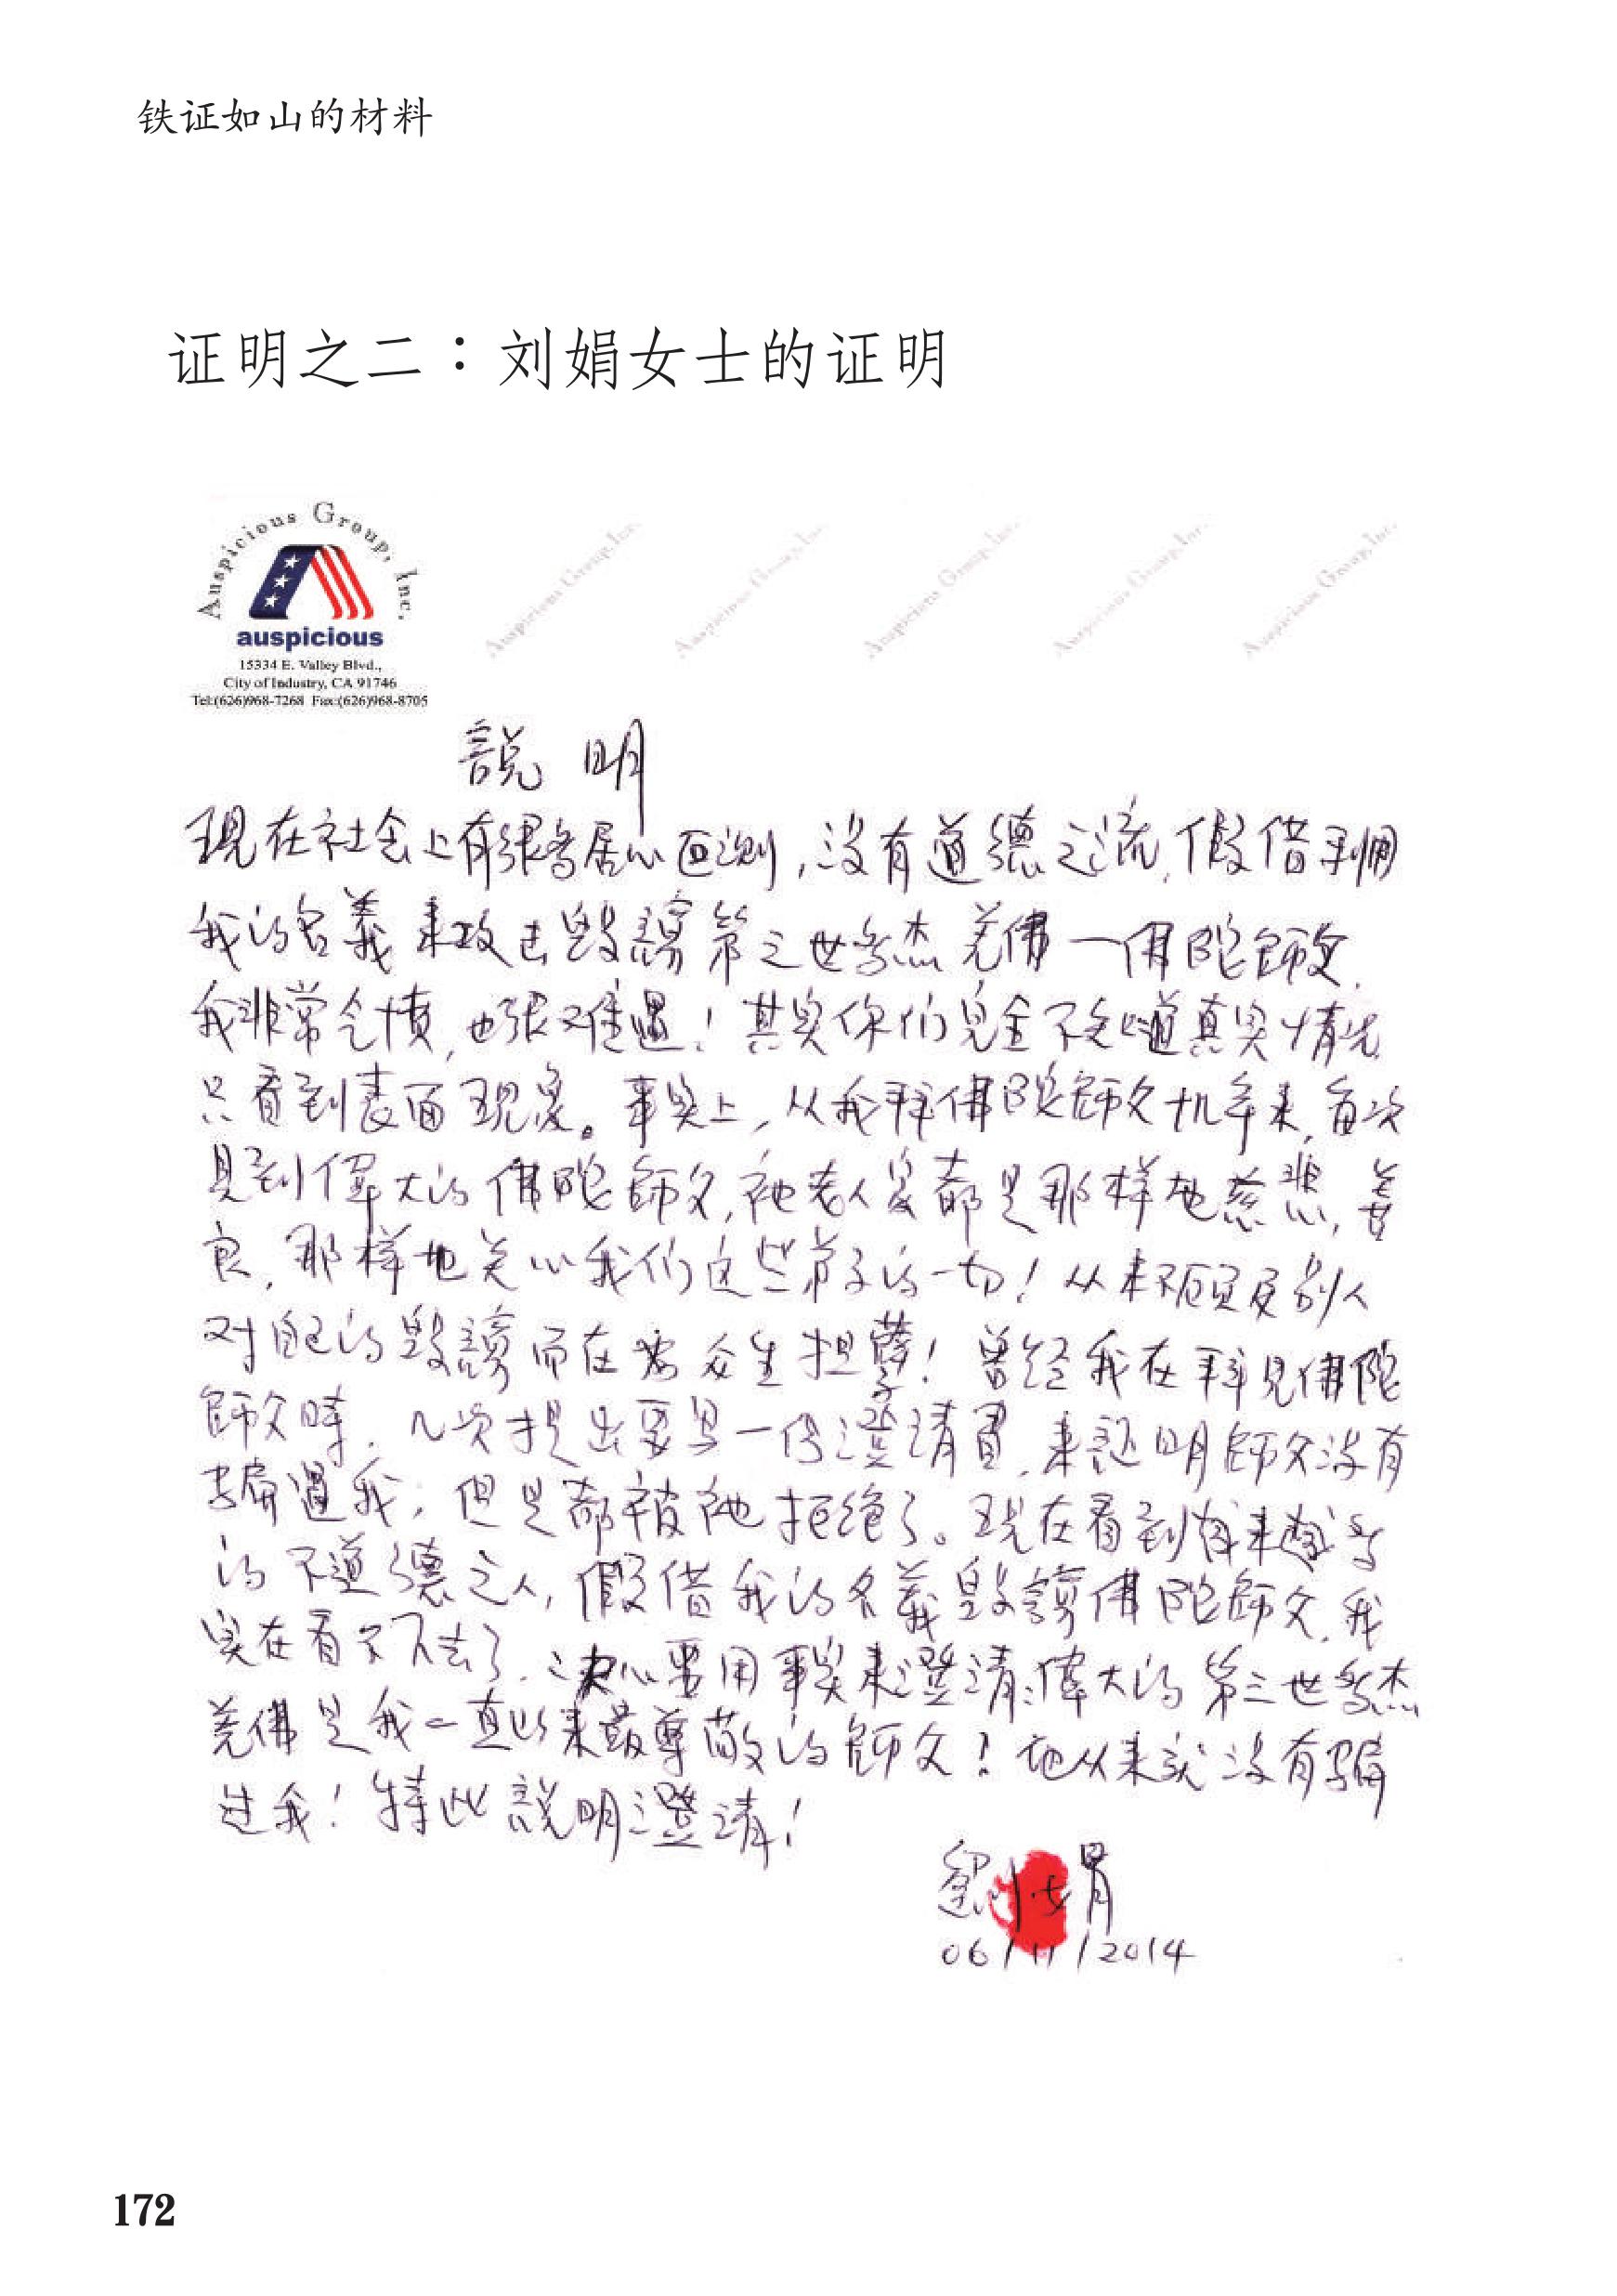 铁证如山的材料
证明之二：刘娟女士的证明
Auspicious Group, Inc.
auspicious
15334 E. Valley Blvd.,
City of Industry, CA 91746
Tel:(626)968-7268 Fax:(626)968-8705
Auspicious Group, Inc. Auspicious Group, Inc. Auspicious Group, Inc. Auspicious Group, Inc. Auspicious Group, Inc.
說明
現在社会上有很多居心叵测，没有道德之流，假借利用
我的名義来攻击毁謗第三世多杰羌佛一佛陀師父，
我非常气愤，也很难過！其実你们完全不知道真実情况，
只看到表面现象。事実上，从我拜佛陀師父十几年来，每次
見到偉大的佛陀師父，祂老人家都是那样地慈悲，善
良，那样地关心我们这些弟子的一切！从来不顾及别人
对自己的毁謗而在为众生担孽！曾经我在拜見佛陀
師父時，几次提出要写一份澄清書，来証明師父没有
骗過我，但是都被祂拒绝了。现在看到有来越多
的不道德之人，假借我的名義毁謗佛陀師父，我
実在看不下去了，决心要用事実来澄清：偉大的第三世多杰
羌佛是我一直以来最尊敬的師父！祂从来就没有骗
过我！特此說明澄清！
劉娟
06/11/2014
172